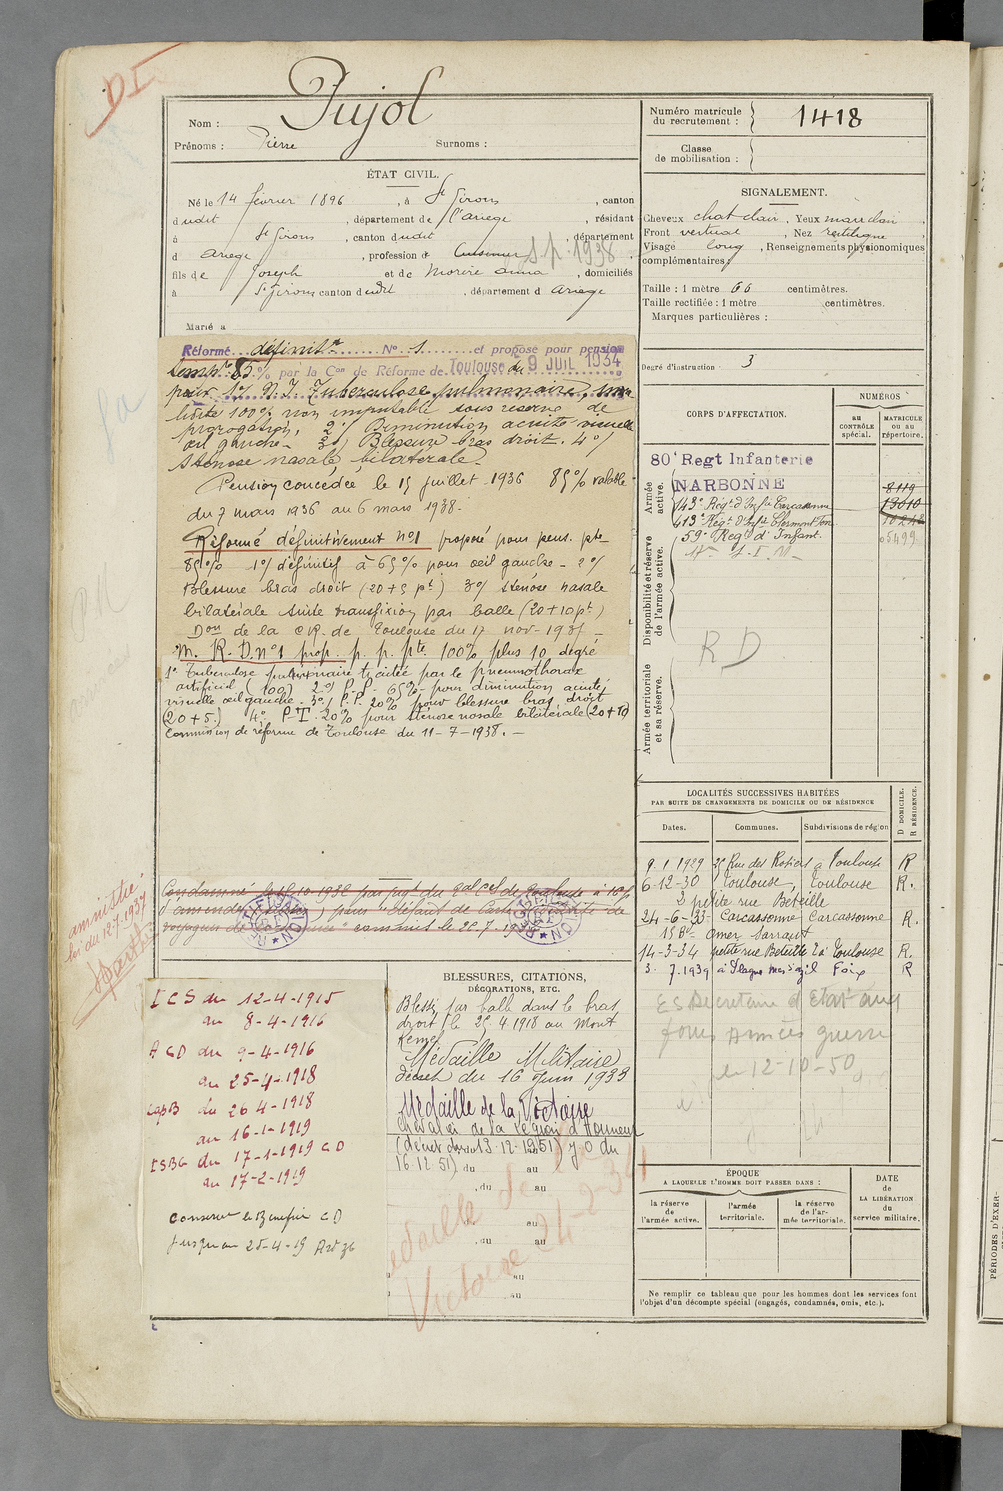 DI
Nom : Pujol
Prénoms : Pierre Surnoms :
Numéro matricule du recrutement : 1418
Classe de mobilisation :
ÉTAT CIVIL.
Né le 14 février 1896, à St Girons, canton
dudit, département de l'ariege, résidant
à St Girons, canton dudit, département
d ariege, profession d s.p. 1938
fils de Joseph et de Morère anna, domiciliés
à St Girons canton dudit, département d Ariege
Marié à
SIGNALEMENT.
Cheveux chat clair, Yeux mar clair,
Front vertical, Nez rectiligne,
Visage long, Renseignements physionomiques
complémentaires :
Taille : 1 mètre 66 centimètres.
Taille rectifiée : 1 mètre centimètres.
Marques particulières :
Degré d'instruction 3
Réformé définitt N° 1 et propose pour pension
temp. 85 % par la Con de Réforme de Toulouse du 9 JUIL 1934
pour 1°/ N.I. Tuberculose pulmonaire,
100% non imputable sous reserve de
prorogation, 2°/ Diminution acuité visuelle
œil gauche - 3°/ Blessure bras droit. 4°/
Sténose nasale bilatérale.
Pension concedée le 15 juillet 1936 85% valable
du 7 mars 1936 au 6 mars 1938.
Réformé définitivement n°1 proposé pour pens. pte
85% 1°/ définitif à 65% pour œil gauche - 2°/
Blessure bras droit (20+5 pt) 3°/ sténose nasale
bilatérale suite transfixion par balle (20+10 pt)
Don de la C.R. de Toulouse du 17 nov-1937 -
M. R. D. n°1 prop. p. p. pte 100% plus 10 degré
1° Tuberculose pulmonaire traitée par le pneumothorax
artificiel (100) 2°/ P.P. 65% pour diminution acuité
visuelle œil gauche. 3°/ P.P. 20% pour blessure bras droit
(20+5) 4° P-T. 20% pour sténose nasale bilatérale (20+10)
Commission de réforme de Toulouse du 11-7-1938. -
CORPS D'AFFECTATION.
NUMÉROS
au CONTRÔLE spécial.
MATRICULE ou au répertoire.
Armée active.
80e Regt Infanterie
NARBONNE 8119
143e Regt d'Infie Carcassonne 13010
413e Regt d'Infie Clermont Fon 10242
59e Reg d'Infant. 05499
Disponibilité et réserve de l'armée active.
RD
Armée territoriale et sa réserve.
LOCALITÉS SUCCESSIVES HABITÉES
PAR SUITE DE CHANGEMENTS DE DOMICILE OU DE RÉSIDENCE
Dates. Communes. Subdivisions de région D DOMICILE. R RÉSIDENCE.
9.1.1929 Rue des Rosiers à Toulouse R
6-12-30 Toulouse, Toulouse R.
2 petite rue Béteille
24-6-33 Carcassonne Carcassonne R.
15 Bd Omer Sarraut
14-3-34 petite rue Béteille 2 à Toulouse R.
3.7.1939 à Plagne Foix R
Secretaire d'Etat aux
forces Armées guerre
le 12-10-50
amnistié
loi du 12-7-1937
RECTIFICATION
ICS du 12-4-1915
au 8-4-1916
ACD du 9-4-1916
au 25-4-1918
CapB du 26 4-1918
au 16-1-1919
ISBG du 17-1-1919 CD
au 17-2-1919
Conserve le Bénéfice CD
jusqu'au 25-4-19 Art 36
BLESSURES, CITATIONS,
DÉCORATIONS, ETC.
Blessé par balle dans le bras
droit le 25.4.1918 au Mont
Kemel
Médaille Militaire
Décret du 16 Juin 1933
Médaille de la Victoire
Chevalier de la Légion d'Honneur
(décret du 13.12.1951) J.O du
16.12.51) du au
, du au
au
, du au
au
au
Médaille de la
Victoire
ÉPOQUE
A LAQUELLE L'HOMME DOIT PASSER DANS :
la réserve de l'armée active.
l'armée territoriale.
la réserve de l'armée territoriale.
DATE de LA LIBÉRATION du service militaire.
Ne remplir ce tableau que pour les hommes dont les services font
l'objet d'un décompte spécial (engagés, condamnés, omis, etc.).